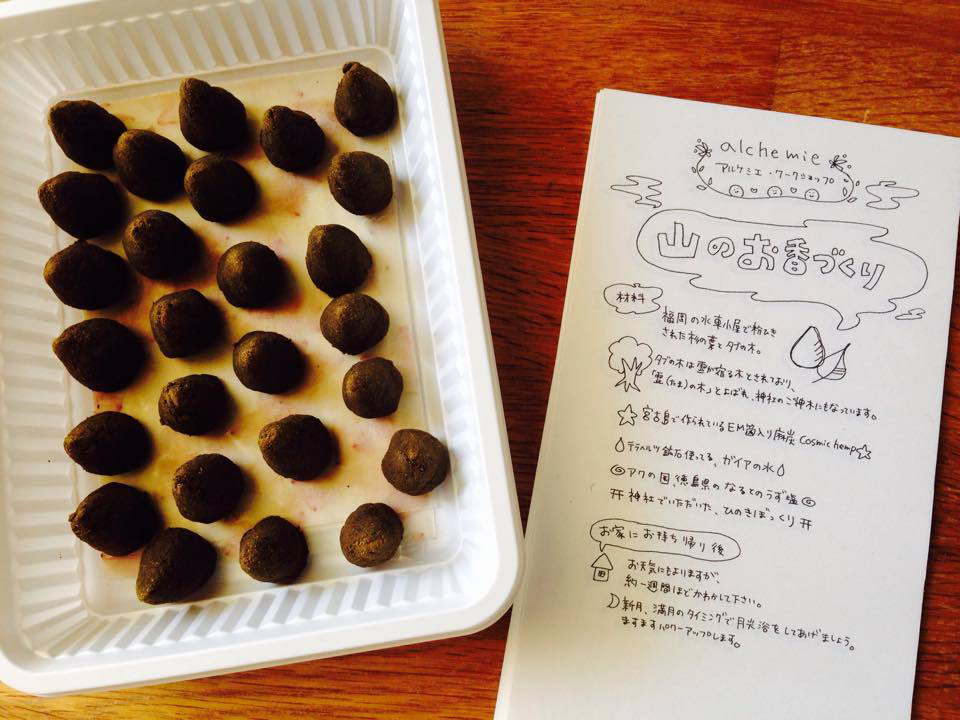 alchemie
アルケミエ・ワークショップ
山のお香づくり
材料
福岡の水車小屋で粉ひき
された杉の葉とタブの木。
タブの木は霊が宿る木とされており、
「霊(たま)の木」とよばれ、神社のご神木にもなっています。
宮古島で作られているEM菌入り麻炭 Cosmic hemp
テラヘルツ鉱石使ってる、ガイアの水
アワの国、徳島県のなるとのうず塩
神社でいただいた、ひのきぼっくり
お家にお持ち帰り後
お天気にもよりますが、
約一週間ほどかわかして下さい。
新月、満月のタイミングで月光浴をしてあげましょう。
ますますパワーアップします。